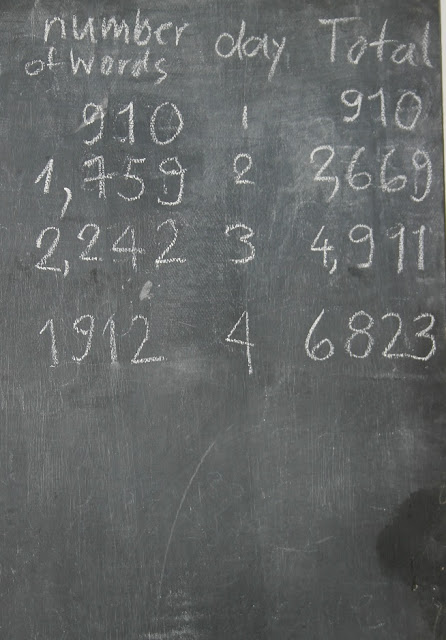 number day Total
of Words
910 1 910
1,759 2 2,669
2,242 3 4,911
1912 4 6823